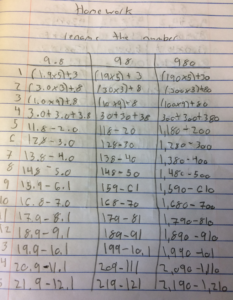 Homework
rename the number
9.8 98 980
1 (1.9x5)+.3 (19x5)+3 (190x5)+30
2 (3.0x3)+.8 (30x3)+8 (300x3)+80
3 (1.0x9)+.8 (10x9)+8 (100x9)+80
4 3.0+3.0+3.8 30+30+38 300+300+380
5 11.8-2.0 118-20 1,180-200
6 12.8-3.0 128-30 1,280-300
7 13.8-4.0 138-40 1,380-400
8 14.8-5.0 148-50 1,480-500
9 15.9-6.1 159-61 1,590-610
10 16.8-7.0 168-70 1,680-700
17.9-8.1 179-81 1,790-810
18.9-9.1 189-91 1,890-910
3 19.9-10.1 199-101
4 20.9-11.1 209-111 2,090-1,110
5 21.9-12.1 219-121 2,190-1,210